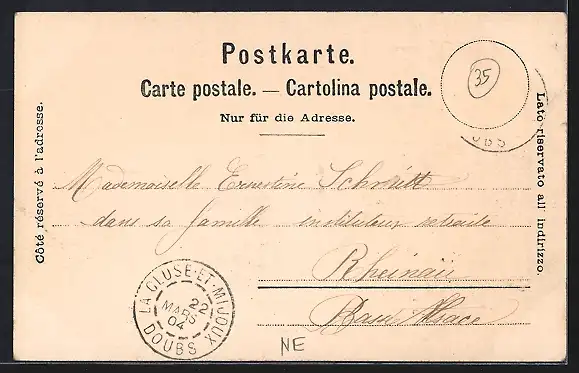 Postkarte.
Carte postale. — Cartolina postale.
Nur für die Adresse.
35
UBS
Côté réservé à l'adresse.
Lato riservato all' indirizzo.
Mademoiselle Ernestine Schmitt
dans sa famille instituteur retraité
Rheinau
Bas Alsace
LA CLUSE-ET-MIJOUX
22
MARS
04
DOUBS
NE